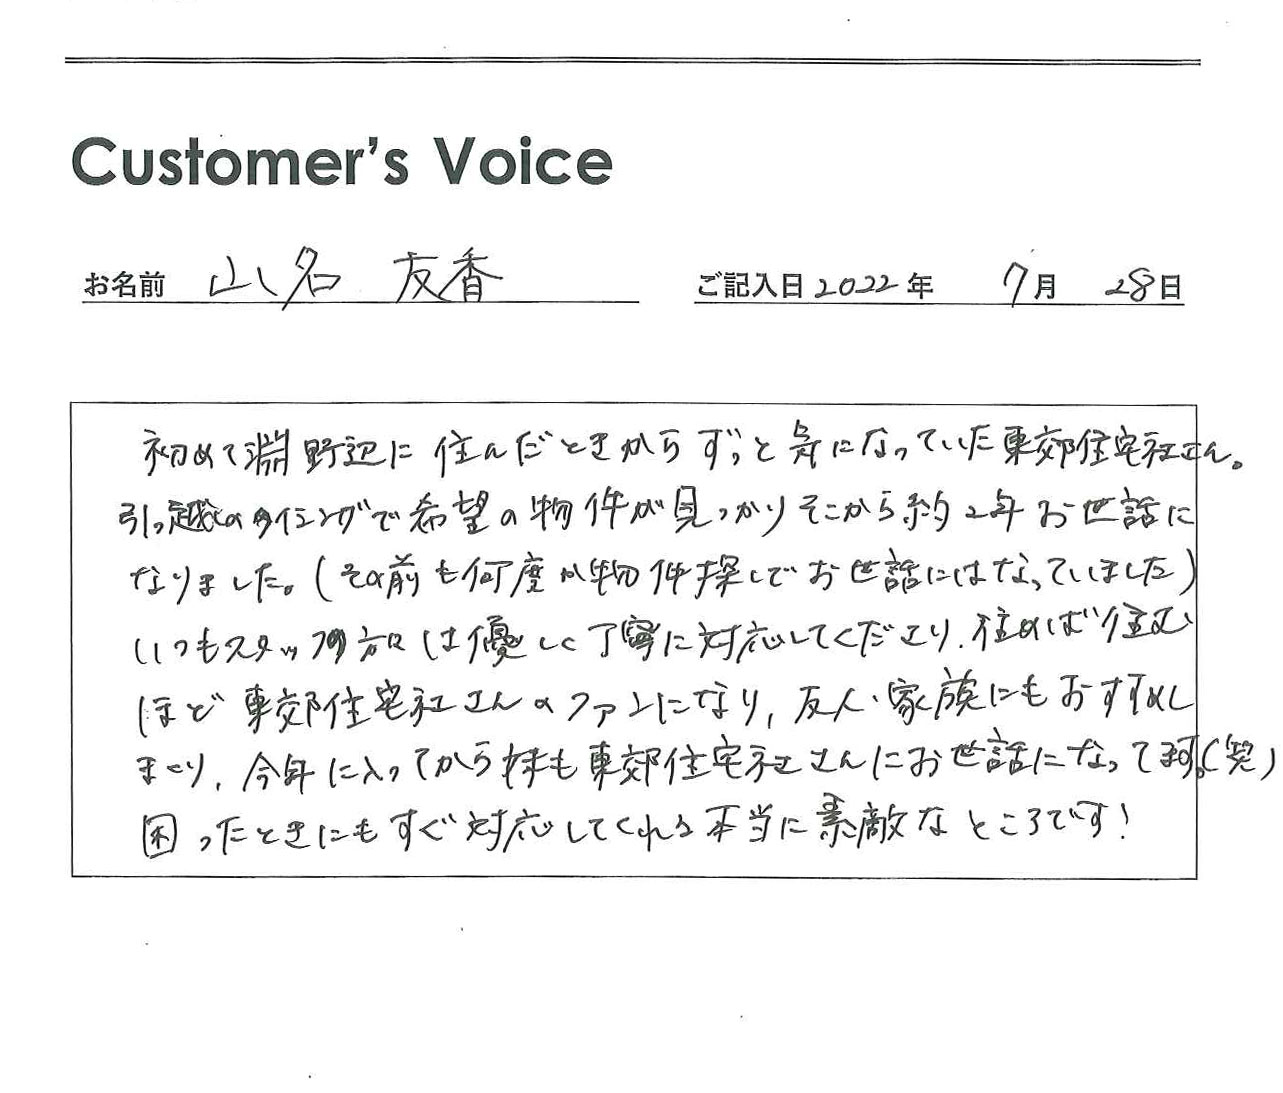 Customer's Voice
お名前 山名 友香 ご記入日 2022年 7月 28日
初めて淵野辺に住んだときからずっと気になっていた東郊住宅社さん。
引っ越しのタイミングで希望の物件が見つかりそこから約2年お世話に
なりました。(その前も何度か物件探しでお世話にはなっていました)
いつもスタッフの方々は優しく丁寧に対応してくださり、住めば住む
ほど東郊住宅社さんのファンになり、友人・家族にもおすすめし
まくり、今年に入ってから妹も東郊住宅社さんにお世話になってます。(笑)
困ったときにもすぐ対応してくれる本当に素敵なところです!